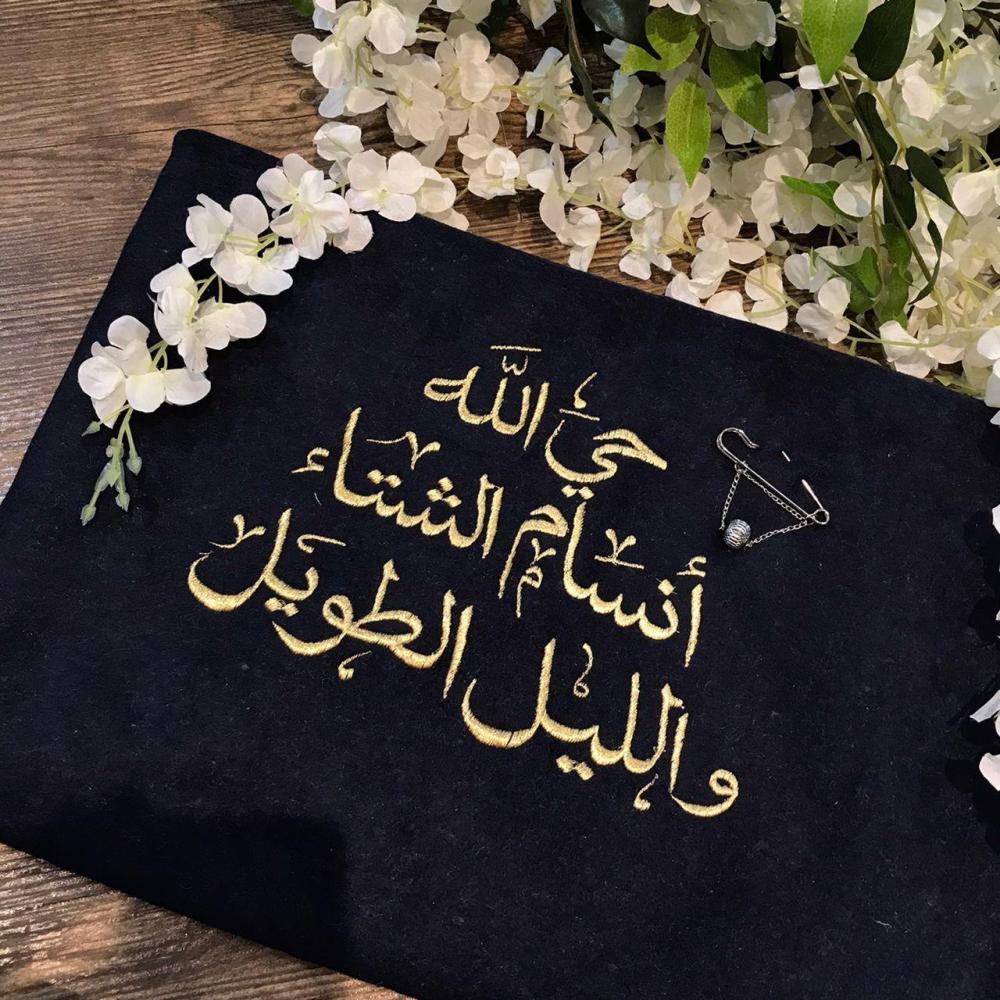 حيّ الله
أنسام الشتاء
والليل الطويل